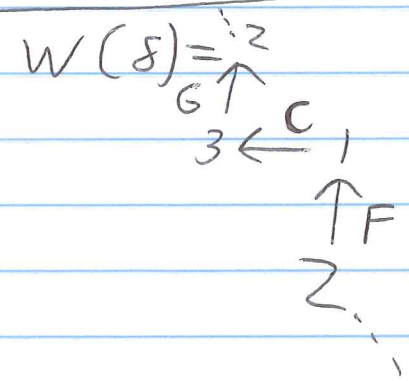 W(8)= 2
G ↑
3 ← C 1
↑ F
2